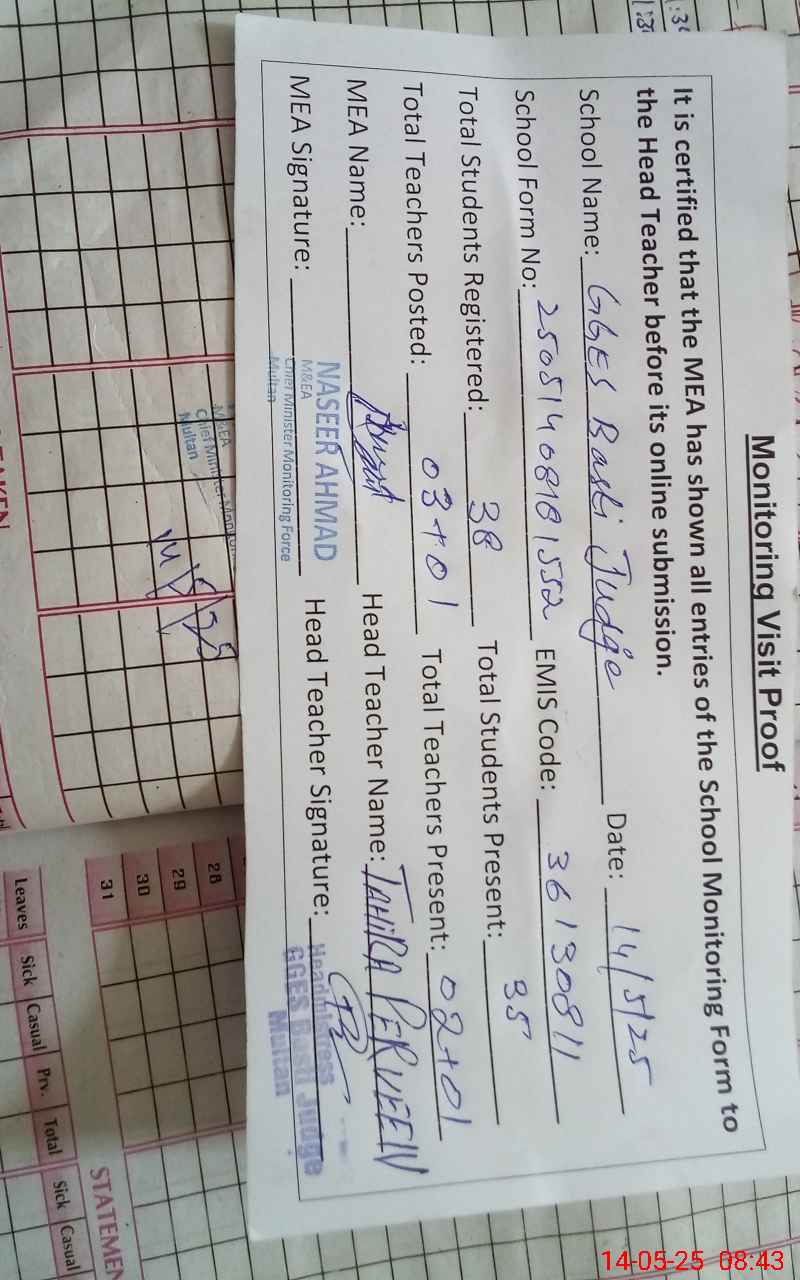 Monitoring Visit Proof
It is certified that the MEA has shown all entries of the School Monitoring Form to
the Head Teacher before its online submission.
School Name: GGES Basti Judge Date: 14/5/25
School Form No: 25051408181552 EMIS Code: 36130811
Total Students Registered: 38 Total Students Present: 35
Total Teachers Posted: 03+01 Total Teachers Present: 02+01
MEA Name: Head Teacher Name: TAHIRA PERVEEN
MEA Signature: Head Teacher Signature:
NASEER AHMAD
M&EA
Chief Minister Monitoring Force
Multan
Headmistress
GGES Basti Judge
Multan
M&EA
Chief Minister
Multan
28
29
30
31
Leaves Sick Casual Prv. Total Sick Casual
STATEMEN
14-05-25 08:43